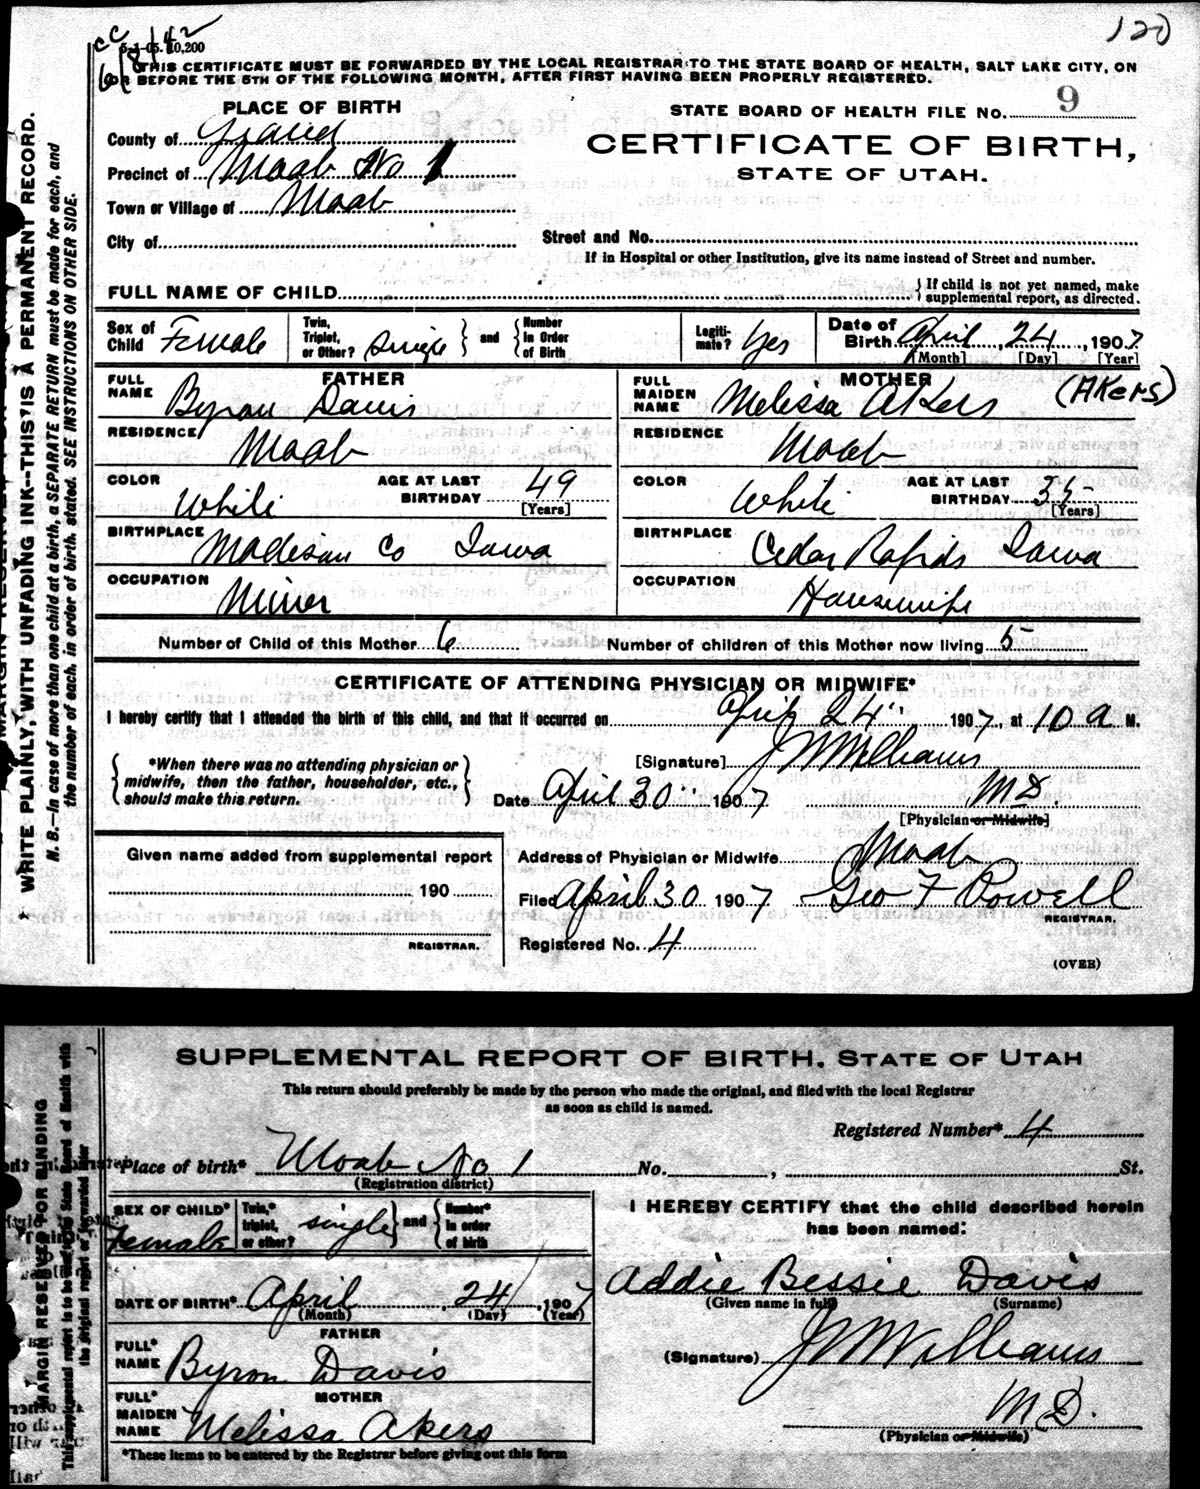 120
CC
6/8/42
5-1-05. 10,200
THIS CERTIFICATE MUST BE FORWARDED BY THE LOCAL REGISTRAR TO THE STATE BOARD OF HEALTH, SALT LAKE CITY, ON
OR BEFORE THE 5TH OF THE FOLLOWING MONTH, AFTER FIRST HAVING BEEN PROPERLY REGISTERED.
PLACE OF BIRTH
STATE BOARD OF HEALTH FILE No. 9
County of Grand
CERTIFICATE OF BIRTH,
Precinct of Moab No 1
STATE OF UTAH.
Town or Village of Moab
City of
Street and No.
If in Hospital or other Institution, give its name instead of Street and number.
FULL NAME OF CHILD
{ If child is not yet named, make supplemental report, as directed.
Sex of Child Female
Twin, Triplet, or Other? Single } and { Number In Order of Birth
Legiti-mate? Yes
Date of Birth April 24, 1907
[Month] [Day] [Year]
FATHER
FULL NAME Byron Davis
MOTHER
FULL MAIDEN NAME Melissa Akers (Akers)
RESIDENCE Moab
RESIDENCE Moab
COLOR White AGE AT LAST BIRTHDAY 49 [Years]
COLOR White AGE AT LAST BIRTHDAY 35 [Years]
BIRTHPLACE Madison Co Iowa
BIRTHPLACE Cedar Rapids Iowa
OCCUPATION Miner
OCCUPATION Housewife
Number of Child of this Mother 6 Number of children of this Mother now living 5
CERTIFICATE OF ATTENDING PHYSICIAN OR MIDWIFE*
I hereby certify that I attended the birth of this child, and that it occurred on April 24", 1907, at 10 a M.
{ *When there was no attending physician or midwife, then the father, householder, etc., should make this return. }
[Signature] J W Williams
Date April 30" 1907 M.D.
[Physician or Midwife]
Given name added from supplemental report
190
REGISTRAR.
Address of Physician or Midwife Moab
Filed April 30 1907 Geo F Powell
REGISTRAR.
Registered No. 4
(OVER)
WRITE PLAINLY, WITH UNFADING INK--THIS IS A PERMANENT RECORD.
N. B.--In case of more than one child at a birth, a SEPARATE RETURN must be made for each, and
the number of each, in order of birth, stated. SEE INSTRUCTIONS ON OTHER SIDE.
SUPPLEMENTAL REPORT OF BIRTH, STATE OF UTAH
This return should preferably be made by the person who made the original, and filed with the local Registrar
as soon as child is named.
Registered Number* 4
Place of birth* Moab No 1 No. , St.
(Registration district)
SEX OF CHILD* Female
Twin,* triplet, or other? single } and { Number* in order of birth
I HEREBY CERTIFY that the child described herein
has been named:
DATE OF BIRTH* April 24, 1907
(Month) (Day) (Year)
Addie Bessie Davis
(Given name in full) (Surname)
FATHER
FULL* NAME Byron Davis
(Signature) J W Williams
MOTHER
FULL* MAIDEN NAME Melissa Akers
M.D.
(Physician or Midwife)
*These items to be entered by the Registrar before giving out this form
MARGIN RESERVED FOR BINDING